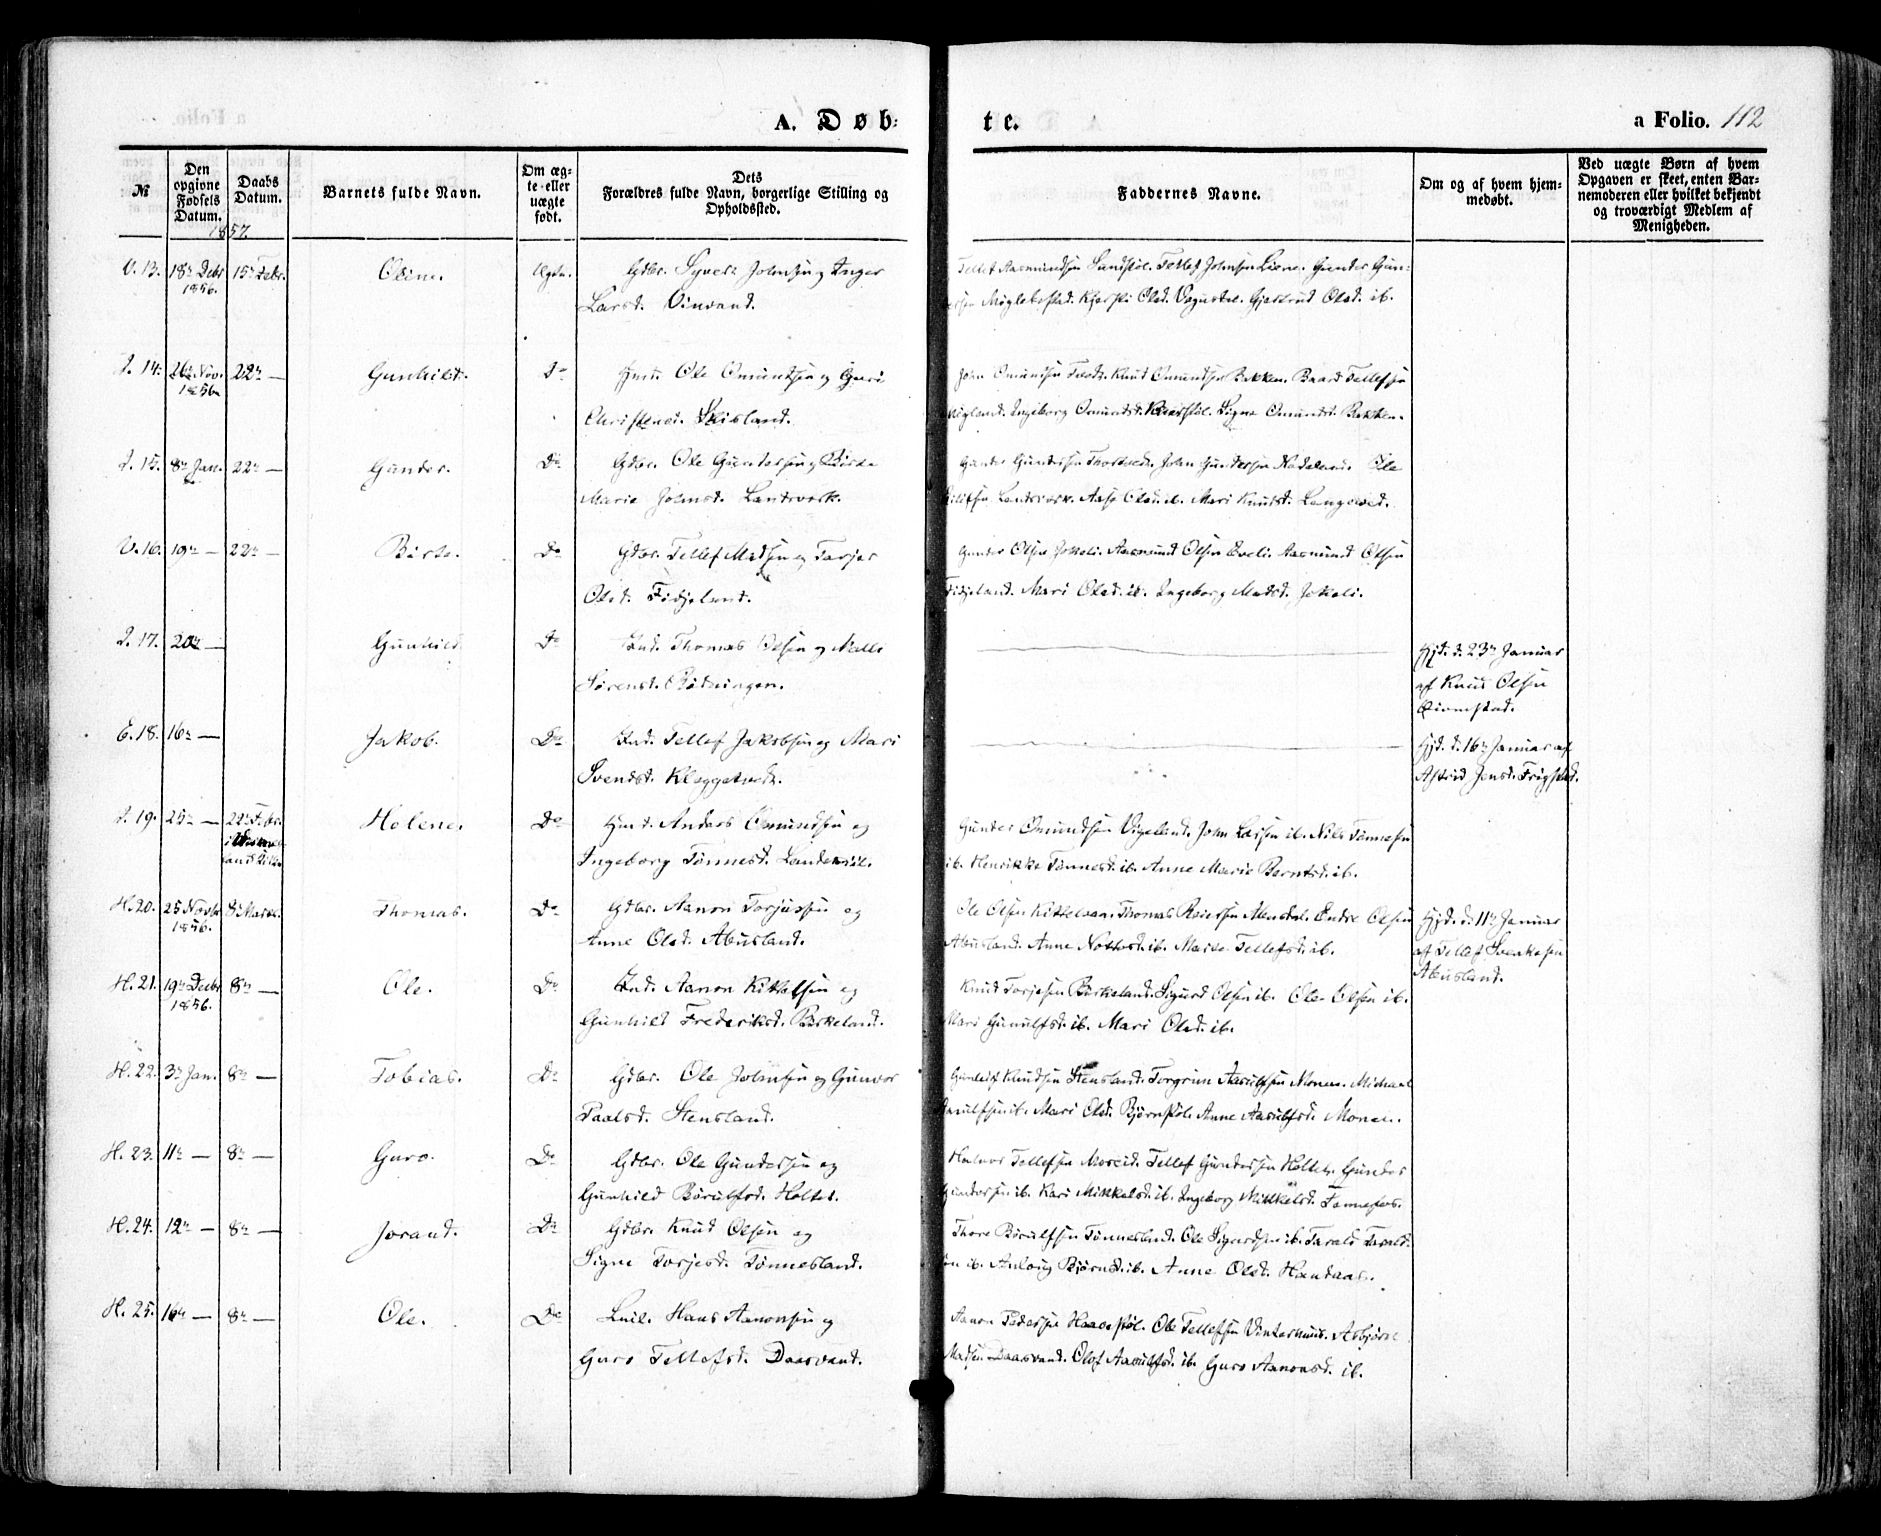 A. Døb:
te.
a Folio. 112
№
Den opgivne Fødsels Datum.
Daabs Datum.
Barnets fulde Navn.
Om ægte eller uægte født.
Dets Forældres fulde Navn, borgerlige Stilling og Opholdssted.
Faddernes Navne.
Om og af hvem hjemmedøbt.
Ved uægte Børn af hvem Opgaven er skeet, enten Barnemoderen eller hvilket bekjendt og troværdigt Medlem af Menigheden.
1857.
V. 13. 18de Debr 1856. 15de Febr. Oline. Ægte. Gdbr. Syvert Johnsen og Inger
Larsd. Vinvand.
Tellef Aasmundsen Sundstøl. Tellef Johnsen Liene. Gunder Gun-
Olsd. Gjertrud Olsd. ib.
I. 14. 26de Nov. 1856 22de — Gunhild. Do Ole Omundsen og Guri
Christensd. Skisland.
John Omundsen Knud Omundsen Bakken. Baard Tellefsen
Ingeborg Omundsd. Signe Omundsd. Bakken.
I. 15. 8de Jan. 22de — Gunder. Do Gdbr. Ole Gundersen og Birte
Marie Johnsd. Landsverk.
Gunder Gundersen John Gundersen Ole
Landsverk. Aase Olsd. ib. Mari Knudsd.
V. 16. 19de — 22de — Birte. Do Gdbr. Tellef Madsen og Tarjer
Olsd. Fidjeland.
Gunder Olsen Jokeli. Aasmund Olsen Eveli. Aasmund Olsen
Fidjeland. Mari Olsd. ib. Ingeborg Madsd. Jokeli.
I. 17. 20de — Gunhild Do Ind. Thomas Olsen og Malli
Sørensd.
Hjd. d. 23de Januar
af Knud Olsen
E. 18. 16de — Jakob. Do Ind. Tellef Jakobsen og Mari
Svendsd. Kleggetvedt.
Hjd. d. 16de Januar af
Astrid Jensd. Frigstad.
I. 19. 25de — 22de Febr. Helene. Do Anders Omundsen og
Ingeborg Tønnesd.
Gunder Omundsen Vigeland. John Larsen ib. Nils Tønnesen
ib. Henrikke Tønnesd. ib. Anne Marie Berntsd. ib.
H. 20. 25 Novbr 1856. 8de Marts. Thomas. Do Gdbr. Aanon Torjussen og
Anne Olsd. Abusland.
Ole Olsen Thomas Reiersen Endre Olsen
Abusland. Anne ib. Tellefsd. ib.
Hjd. d. 11te Januar
af Tellef Svenkesen
Abusland.
H. 21. 19de Decbr 1856. 8de — Ole. Do Ind. Aanon Kittelsen og
Gunhild Frederiksd. Birkeland.
Knud Torjesen Birkeland. Sigurd Olsen ib. Ole Olsen ib.
Mari Gunulfsd. ib. Mari Olsd. ib.
H. 22. 3de Jan. 8de — Tobias. Do Gdbr. Ole Johnsen og Gunvor
Paalsd. Stensland.
Gunleif Knudsen Stensland. Torgrim Aasulfsen Monen. Michael
Aasulfsen ib. Mari Olsd. Bjørnstøl. Anne Aasulfsd. Monen.
H. 23. 11te — 8de — Guro. Do Gdbr. Ole Gundersen og
Gunhild Børulfsd. Holtet.
Halvor Tellefsen Moseid. Tellef Gundersen Holtet. Gunder
Gundersen ib. Kari Mikkelsd. ib. Ingeborg Mikkelsd.
H. 24. 12te — 8de — Jorand. Do Gdbr. Knud Olsen og
Signe Torjesd. Tønnesland.
Thore Børulfsen Tønnesland. Ole Sigurdsen ib. Tarald Tarald-
sen ib. Anlaug Bjørnsd. ib. Anne Olsd. Handaas.
H. 25. 16de — 8de — Ole. Do Leil. Hans Aanonsen og
Guro Tellefsd. Daasvand.
Aanon Pedersen Haaestøl. Ole Tellefsen Vinterhuus. Asbjørn
Madsen Daasvand. Oluf Aasulfsd. ib. Guro Aanonsd. ib.